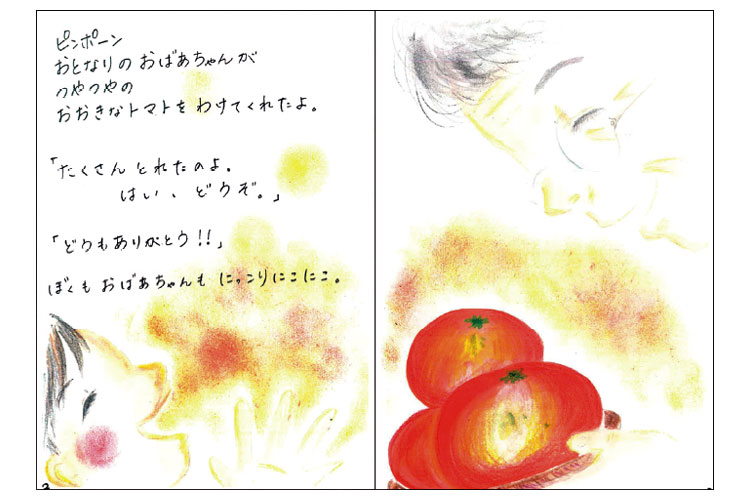 ピンポーン
おとなりの おばあちゃんが
つやつやの
おおきなトマトを わけてくれたよ。
「たくさん とれたのよ。
はい、どうぞ。」
「どうもありがとう!!」
ぼくも おばあちゃんも にっこりにこにこ。